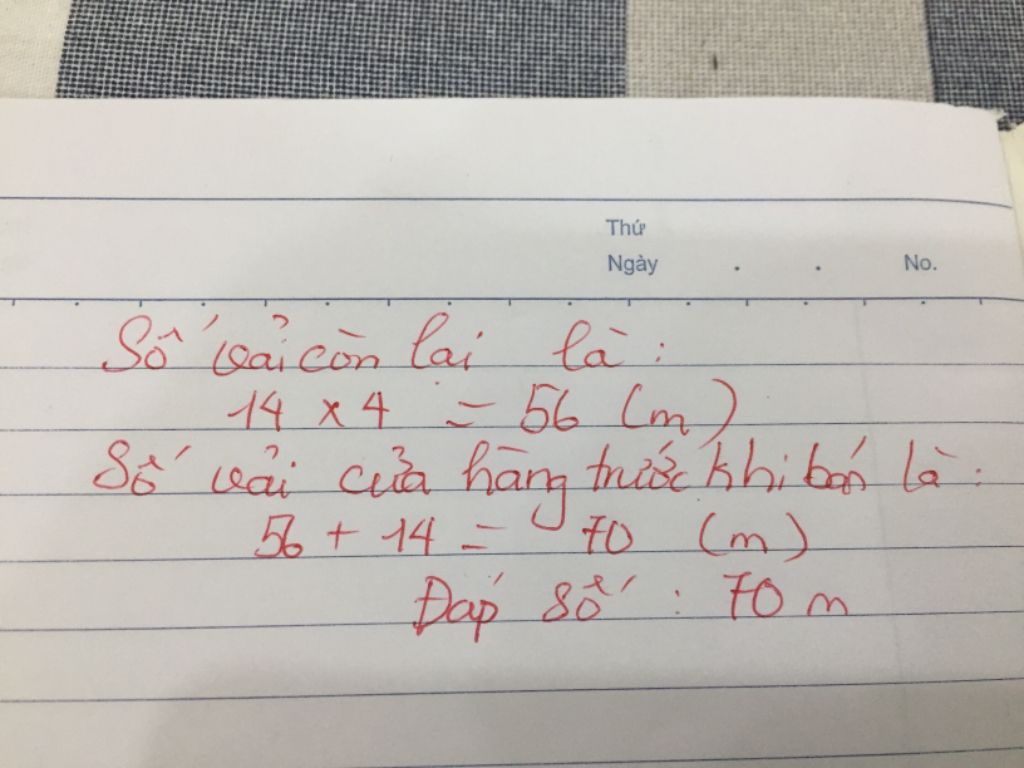 Thứ
Ngày . . No.
Số vải còn lại là :
14 x 4 = 56 (m)
Số vải cửa hàng trước khi bán là :
56 + 14 = 70 (m)
Đáp số : 70 m